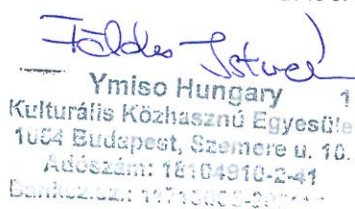 Földes István
Ymiso Hungary 1
Kulturális Közhasznú Egyesüle
1054 Budapest, Szemere u. 10.
Adószám: 18104910-2-41